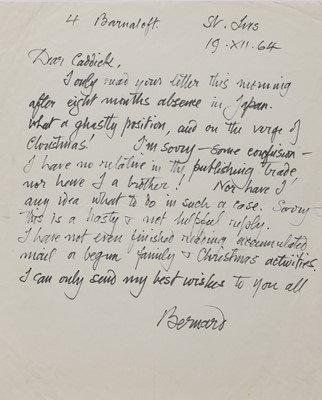 4 Barnaloft. St. Ives
19.XII.64
Dear Caddick,
I only read your letter this morning
after eight months absence in Japan.
What a ghastly position, and on the verge of
Christmas! I'm sorry – some confusion –
I have no relative in the publishing trade,
nor have I a brother! Nor have I
any idea what to do in such a case. Sorry
this is a hasty & not helpful reply.
I have not even finished reading accumulated
mail or begun family & Christmas activities.
I can only send my best wishes to you all
Bernard